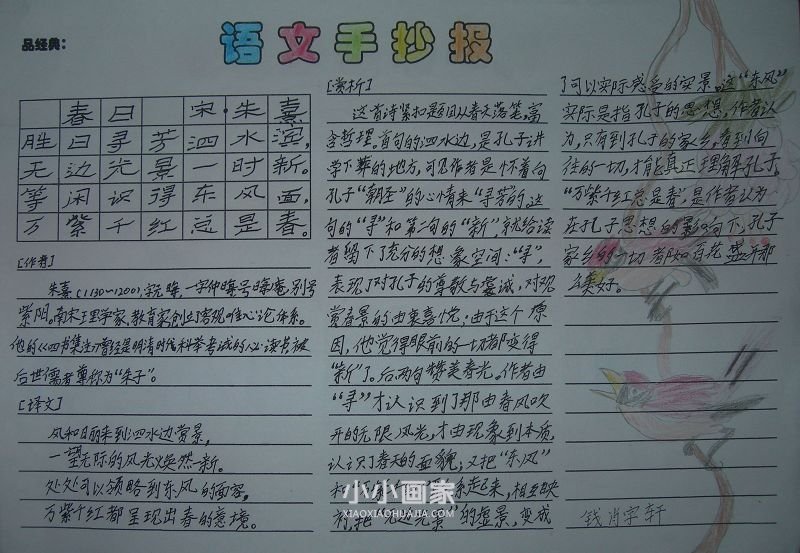 品经典：
语文手抄报
春日 宋·朱熹
胜日寻芳泗水滨，
无边光景一时新。
等闲识得东风面，
万紫千红总是春。
[作者]
朱熹（1130～1200），字元晦，一字仲晦，号晦庵，别号
紫阳。南宋理学家、教育家，创立了客观唯心论体系。
他的《四书集注》曾经是明清时代科举考试的必读书，被
后世儒者尊称为“朱子”。
[译文]
风和日丽来到泗水边赏景，
一望无际的风光焕然一新。
处处可以领略到东风的面容，
万紫千红都呈现出春的意境。
[赏析]
这首诗紧扣题目从春天落笔，富
含哲理。首句的泗水边，是孔子讲
学下葬的地方，可见作者是怀着向
孔子“朝圣”的心情来“寻芳”的。这
句的“寻”和第二句的“新”就给读
者留下了充分的想象空间：“寻”，
表现了对孔子的尊敬与虔诚，对观
赏春景的由衷喜悦；由于这个原
因，他觉得眼前的一切都变得
“新”了。后两句赞美春光。作者由
“寻”才认识到了那由春风吹
开的无限风光，才由现象到本质，
认识了春天的面貌；又把“东风”
来起来，相互映
衬，把“无边光景”的虚景，变成
了可以实际感受的实景。这“东风”
实际是指孔子的思想，作者认
为，只有到孔子的家乡，看到向
往的一切，才能真正理解孔子。
“万紫千红总是春”，是作者认为
在孔子思想的影响下，孔子
家乡的一切都如百花盛开那
么美好。
小小画家
XIAOXIAOHUAJIA.COM
钱肖宇轩